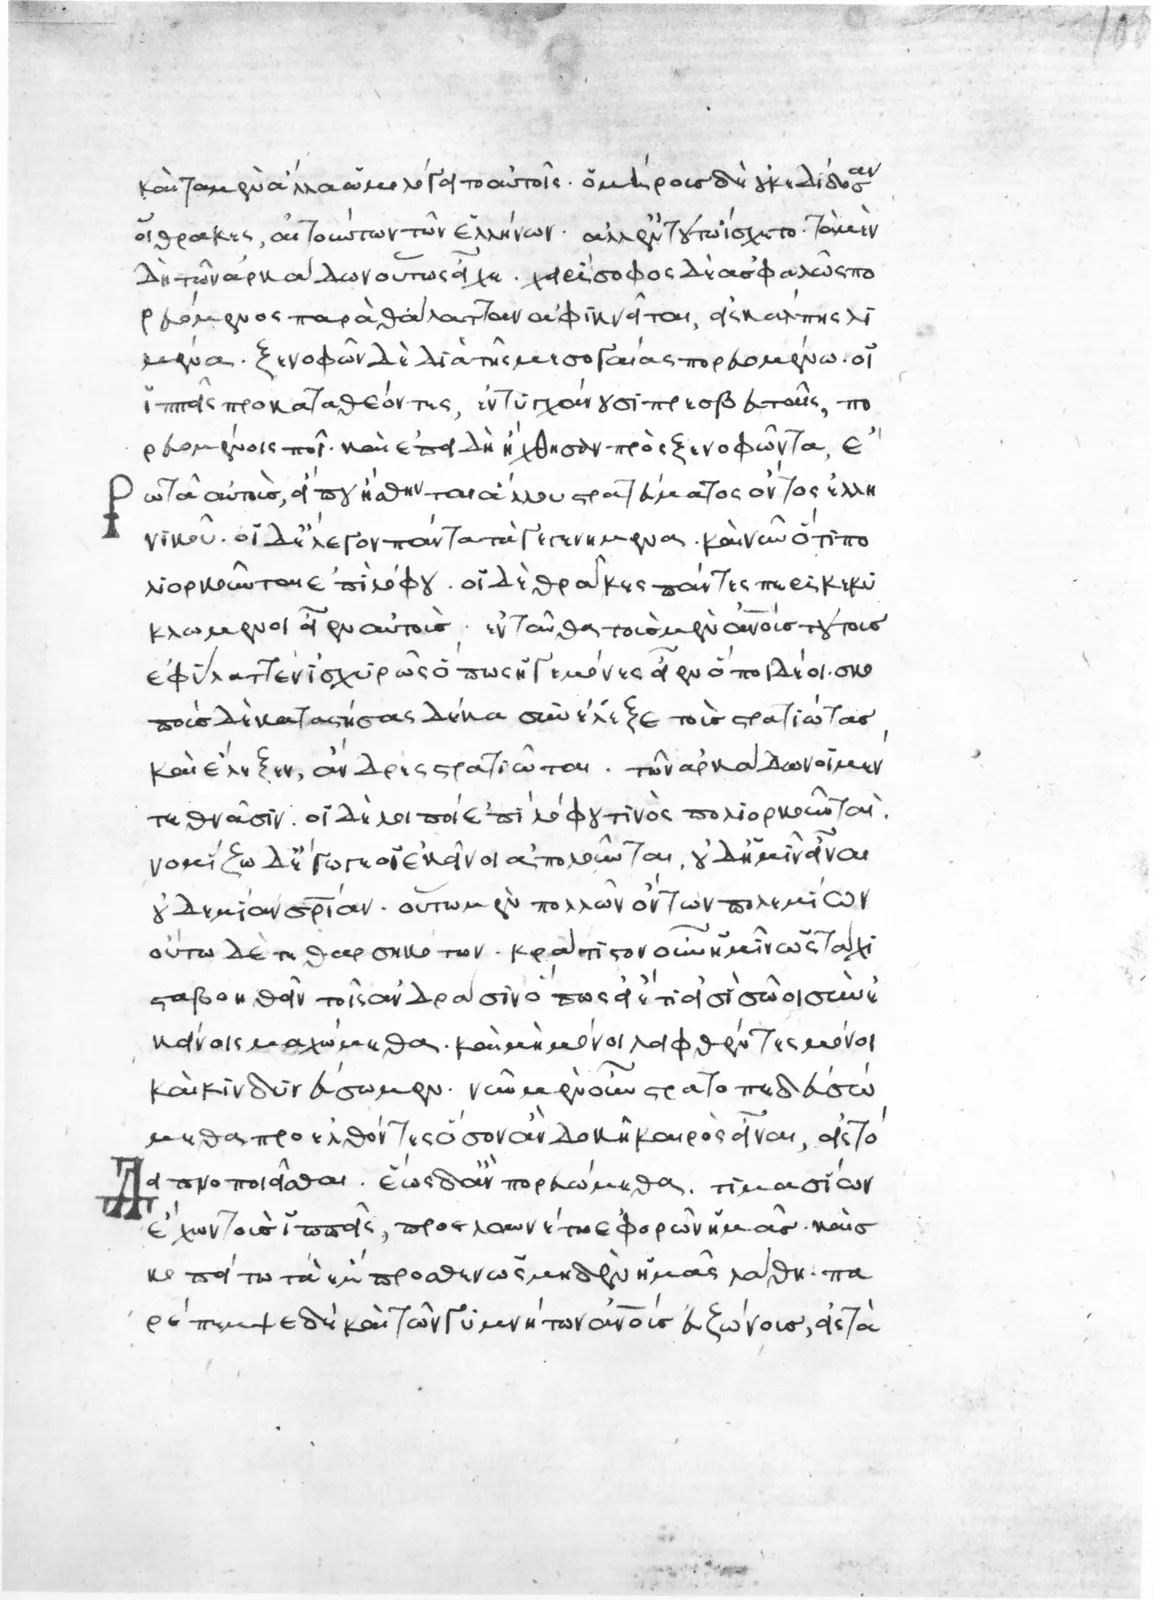 καὶ τὰ μὲν ἄλλα ὡμολόγητο αὐτοῖς· ὁμήρους δὲ οὐκ ἐδίδοσαν
οἱ θρᾶκες, αἰτούντων τῶν ἑλλήνων· ἀλλ' ἐν τούτῳ ἴσχετο· τὰ μὲν
δὴ τῶν ἀρκάδων οὕτως εἶχε· χειρίσοφος δὲ ἀσφαλῶς πο
ρευόμενος παρὰ θάλατταν ἀφικνεῖται, εἰς κάλπης λι
μένα· ξενοφῶν δὲ διὰ τῆς μεσογαίας πορευομένω· οἱ
ἱππεῖς προκαταθέοντες, ἐντυγχάνουσι πρεσβευταῖς, πο
ρευομένοις ποι· καὶ ἐπειδὴ ἤχθησαν πρὸς ξενοφῶντα, ἐ
ρωτᾶ αὐτοὺς, εἴ που ἤσθηνται ἄλλου στρατεύματος ὄντος ἑλλη
νικοῦ· οἱ δὲ ἔλεγον πάντα τὰ γεγενημένα· καὶ νῦν ὅτι πο
λιορκοῦνται ἐπὶ λόφου· οἱ δὲ θρᾶκες πάντες περικεκυ
κλωμένοι εἶεν αὐτοὺς· ἐνταῦθα τοὺς μὲν ἀνους τούτους
ἐφύλαττεν ἰσχυρῶς ὅπως ἡγεμόνες εἶεν ὅποι δέοι· σκο
ποὺς δὲ καταστήσας δέκα συνέλεξε τοὺς στρατιώτας
καὶ ἔλεξεν, ἄνδρες στρατιῶται· τῶν ἀρκάδων οἱ μὲν
τεθνᾶσιν· οἱ δὲ λοιποὶ ἐπὶ λόφου τινὸς πολιορκοῦνται·
νομίζω δ' ἔγωγε οἱ ἐκεῖνοι ἀπολοῦνται, οὐδ' ἡμῖν εἶναι
οὐδεμίαν σρίαν· οὕτω μὲν πολλῶν ὄντων πολεμίων
οὕτω δὲ τεθαρσηκότων· κράτιστον οὖν ἡμῖν ὡς τάχι
στα βοηθεῖν τοῖς ἀνδράσιν ὅπως εἰ ἔτι εἰσὶ σῶοι σὺν ἐ
κείνοις μαχώμεθα· καὶ μὴ μόνοι λειφθέντες μόνοι
καὶ κινδυνεύσωμεν· νῦν μὲν οὖν στρατοπεδευσώ
μεθα προελθόντες ὅσον ἂν δοκῆ καιρὸς εἶναι, εἰς τὸ
δειπνοποιεῖσθαι· ἕως δ' ἂν πορευώμεθα· τιμασίων
ἔχων τοὺς ἱππεῖς, προελαυνέτω ἐφορῶν ἡμᾶς· καὶ σ
κοπείτω τὰ ἔμπροσθεν ὡς μηδὲν ἡμᾶς λάθη· πα
ρέπεμψε δὲ καὶ τῶν γυμνήτων ἀνους εὐζώνους, εἰς τὰ